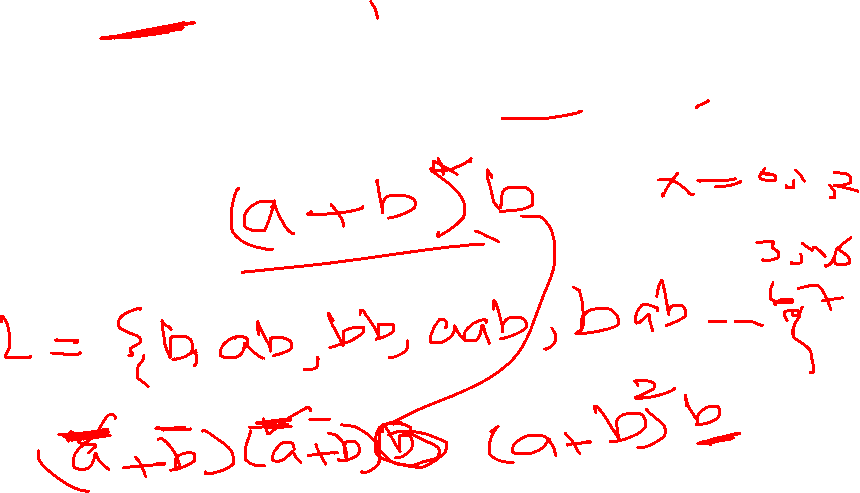 (a+b)* b
x = 0, 1, 2
3, 4, 5
6 7
L = {b, ab, bb, aab, bab -- }
(a+b)(a+b)b (a+b)² b